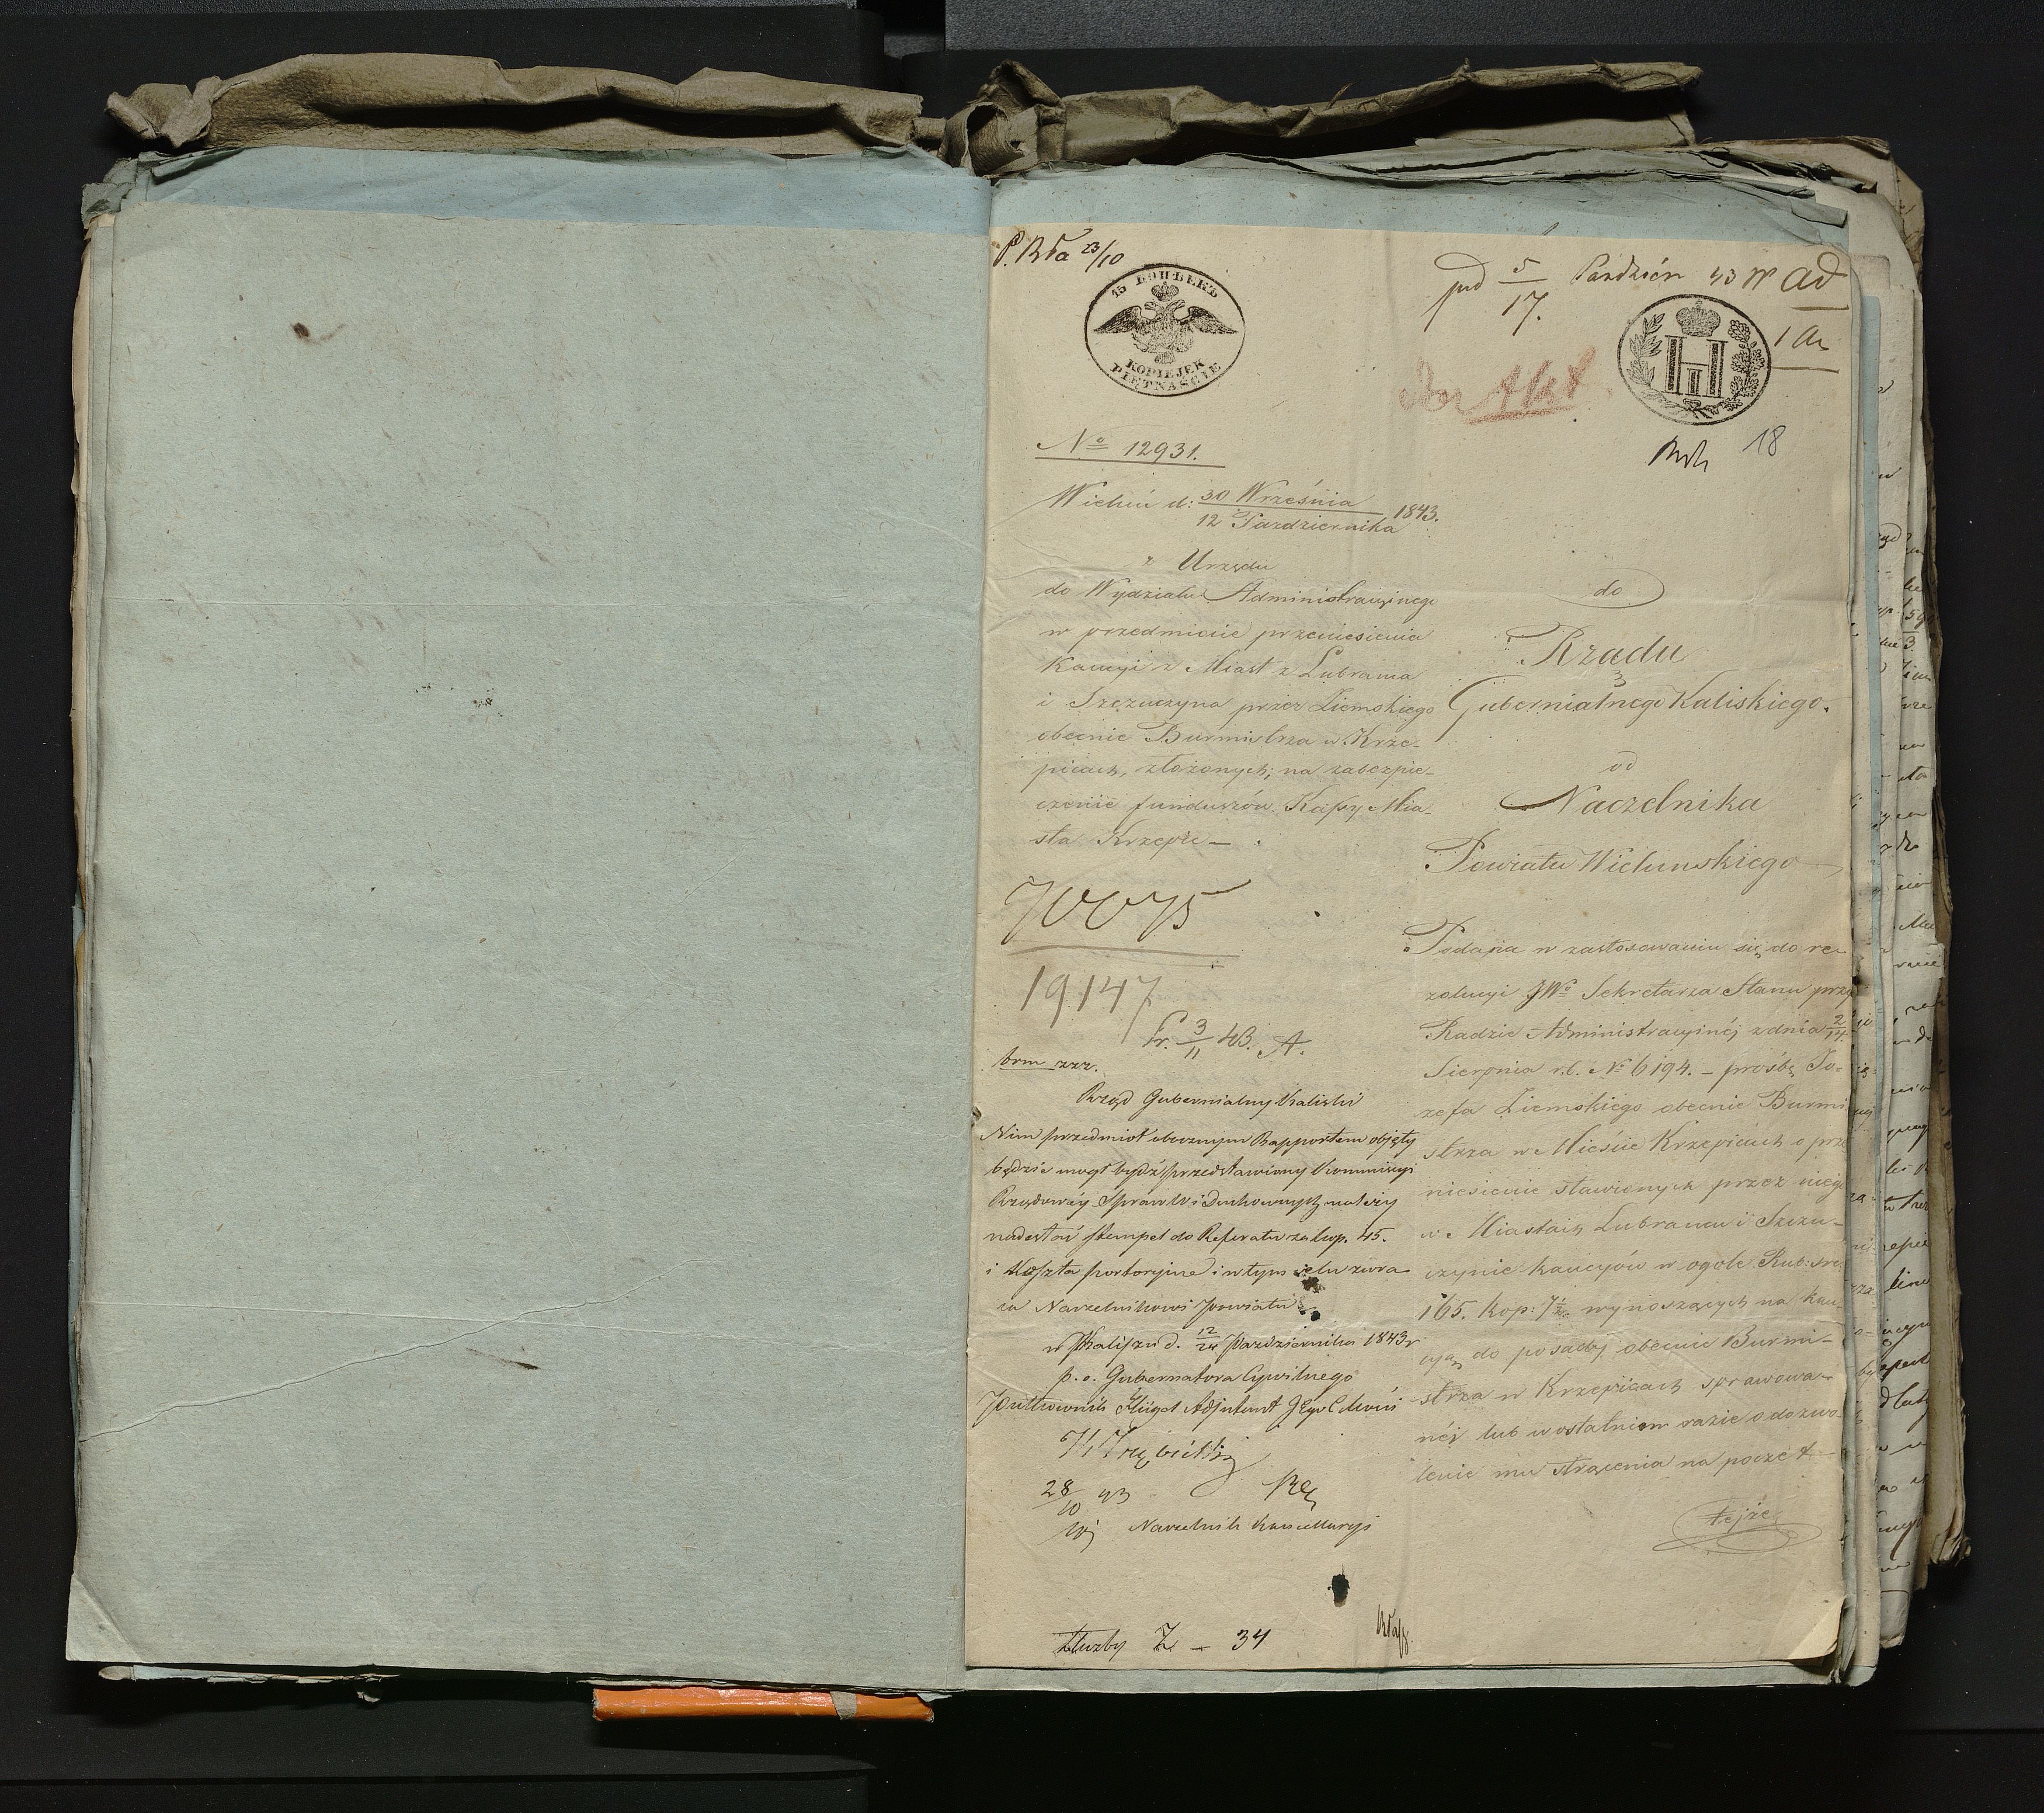 15 КОПѢЕКЪ
KOPIEJEK
PIĘTNAŚCIE
5/17 Październ 43 Ad
18
No 12931.
Wieluń d: 30 Września / 12 Października 1843.
z Urzędu
do Wydziału Administracyinego
w przedmiocie przeniesienia
Kaucyi z Miast z Lubrańca
i Szczuczyna przez Ziemskiego
obecnie Burmistrza w Krze-
picach, złożonych; na zabezpie-
czenie funduszów Kassy Mia-
sta Krzepic —
do
Rządu
Gubernialnego Kaliskiego.
od
Naczelnika
Powiatu Wieluńskiego
Podana w zastosowaniu się do re-
zolucyi JWo Sekretarza Stanu przy
Radzie Administracyinéj z dnia 2/14
Sierpnia r.b. No 6194. – prośbę Jó-
zefa Ziemskiego obecnie Burmi
strza w Mieście Krzepicach o prze
niesienie stawionych przez niego
w Miastach Lubrańcu i Szczu-
czynie kaucyów w ogóle Rub: sre
165. kop: 7½ wynoszących na kau-
cyą, do posady obecnie Burmi-
strza w Krzepicach sprawowa-
néj lub w ostatniem razie o dozwo-
lenie mu strącenia na poczet
tejże
70075
19147
Pr. 3/11 43. A.
Rząd Gubernialny Kaliski
Nim przedmiot obocznym Rapportem objęty
będzie mógł bydź przedstawiony Kommissyi
Rządowéy Spraw W i Duchownych należy
nadesłać stempel do Referatu za kop. 45.
i Koszta portoryjne i w tym celu zwra
ca Naczelnikowi Powiatu
w Kaliszu d. 12/24 Października 1843 r
p. o. Gubernatora Cywilnego
Pułkownik Fligel Adjutant
28/10 43
Naczelnik Kancellaryi
Służby Z – 34